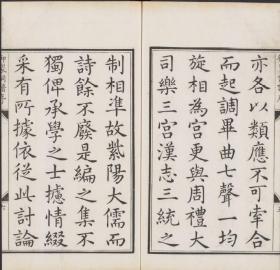 亦各以類應不可牽合
而起調畢曲七聲一均
旋相為宮更與周禮大
司樂三宮漢志三統之
制相準故紫陽大儒而
詩餘不廢是編之集不
獨俾承學之士攄情綴
采有所據依從此討論